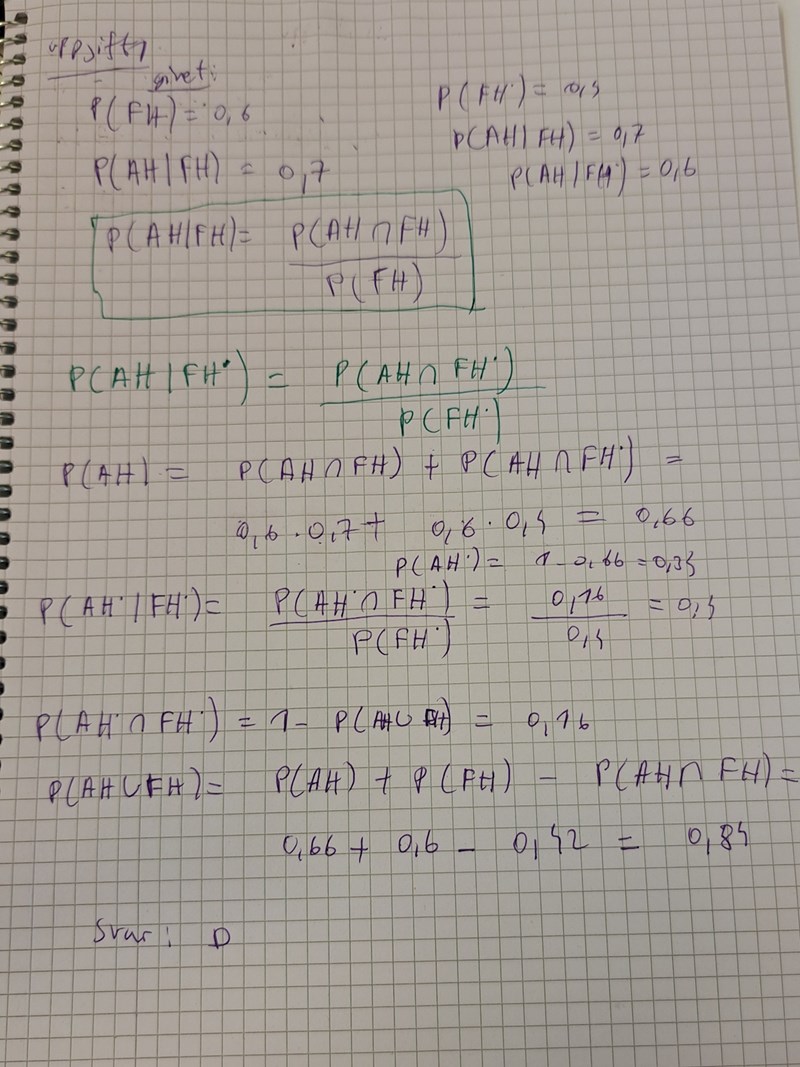 uppgift 1
givet:
P(FH) = 0,6
P(FH*) = 0,4
P(AH|FH) = 0,7
P(AH|FH) = 0,7
P(AH|FH*) = 0,6
P(AH|FH) = P(AH ∩ FH) / P(FH)
P(AH|FH*) = P(AH ∩ FH*) / P(FH*)
P(AH) = P(AH ∩ FH) + P(AH ∩ FH*) =
0,6 · 0,7 + 0,6 · 0,4 = 0,66
P(AH*) = 1 - 0,66 = 0,34
P(AH*|FH*) = P(AH* ∩ FH*) / P(FH*) = 0,16 / 0,4 = 0,4
P(AH* ∩ FH*) = 1 - P(AH ∪ FH) = 0,16
P(AH ∪ FH) = P(AH) + P(FH) - P(AH ∩ FH) =
0,66 + 0,6 - 0,42 = 0,84
Svar: D